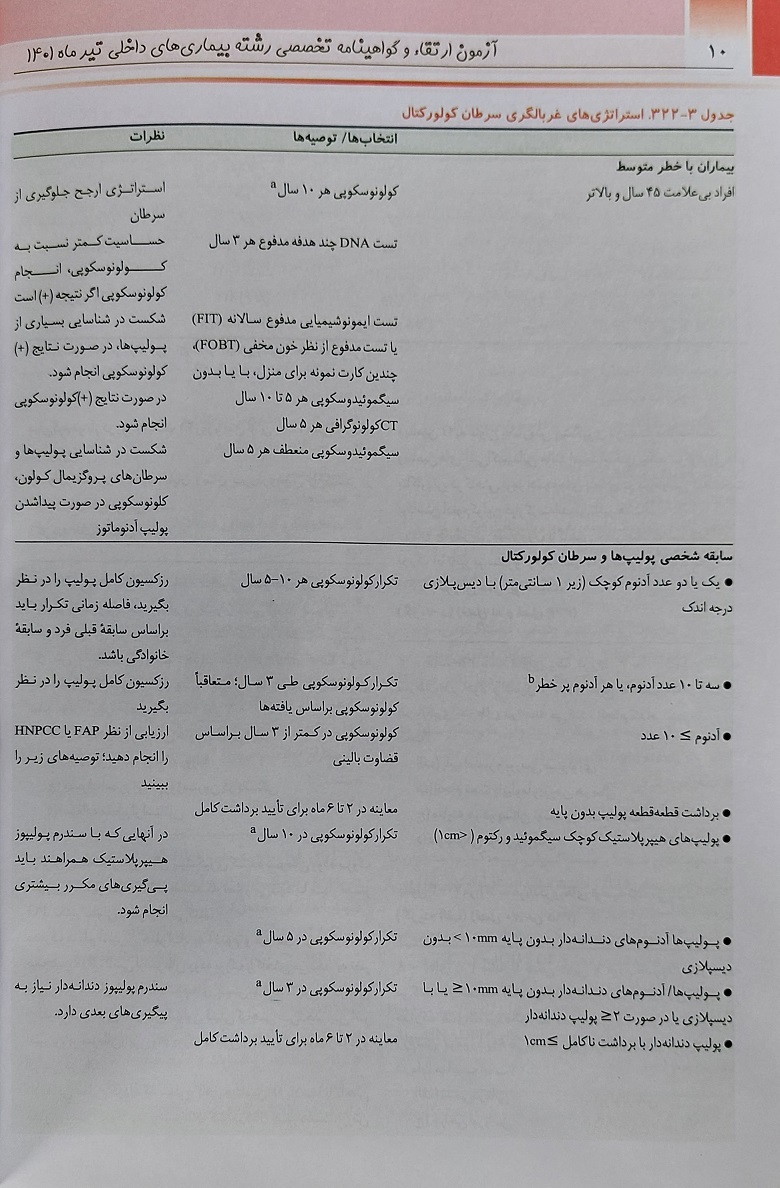 ۱۰
آزمون ارتقاء و گواهینامه تخصصی رشته بیماری‌های داخلی تیر ماه ۱۴۰۱
جدول ۳-۳۲۲. استراتژی‌های غربالگری سرطان کولورکتال
انتخاب‌ها/ توصیه‌ها
نظرات
بیماران با خطر متوسط
افراد بی‌علامت ۴۵ سال و بالاتر
کولونوسکوپی هر ۱۰ سال a
استراتژی ارجح جلوگیری از
سرطان
تست DNA چند هدفه مدفوع هر ۳ سال
حساسیت کمتر نسبت به
کولونوسکوپی، انجام
کولونوسکوپی اگر نتیجه (+) است
تست ایمونوشیمیایی مدفوع سالانه (FIT)
یا تست مدفوع از نظر خون مخفی (FOBT)،
چندین کارت نمونه برای منزل، با یا بدون
سیگموئیدوسکوپی هر ۵ تا ۱۰ سال
شکست در شناسایی بسیاری از
پولیپ‌ها، در صورت نتایج (+)
کولونوسکوپی انجام شود.
CTکولونوگرافی هر ۵ سال
در صورت نتایج (+)کولونوسکوپی
انجام شود.
سیگموئیدوسکوپی منعطف هر ۵ سال
شکست در شناسایی پولیپ‌ها و
سرطان‌های پروگزیمال کولون،
کلونوسکوپی در صورت پیداشدن
پولیپ آدنوماتوز
سابقه شخصی پولیپ‌ها و سرطان کولورکتال
● یک یا دو عدد آدنوم کوچک (زیر ۱ سانتی‌متر) با دیس‌پلازی
درجه اندک
تکرارکولونوسکوپی هر ۱۰-۵ سال
رزکسیون کامل پولیپ را در نظر
بگیرید، فاصله زمانی تکرار باید
براساس سابقهٔ قبلی فرد و سابقهٔ
خانوادگی باشد.
● سه تا ۱۰ عدد آدنوم، یا هر آدنوم پر خطر b
تکرارکولونوسکوپی طی ۳ سال؛ متعاقباً
کولونوسکوپی براساس یافته‌ها
رزکسیون کامل پولیپ را در نظر
بگیرید
● آدنوم ≥ ۱۰ عدد
کولونوسکوپی در کمتر از ۳ سال براساس
قضاوت بالینی
ارزیابی از نظر FAP یا HNPCC
را انجام دهید؛ توصیه‌های زیر را
ببینید
● برداشت قطعه‌قطعه پولیپ بدون پایه
معاینه در ۲ تا ۶ ماه برای تأیید برداشت کامل
● پولیپ‌های هیپرپلاستیک کوچک سیگموئید و رکتوم (<۱cm)
تکرارکولونوسکوپی در ۱۰ سال a
در آنهایی که با سندرم پولیپوز
هیپرپلاستیک همراهند باید
پی‌گیری‌های مکرر بیشتری
انجام شود.
● پولیپ‌ها آدنوم‌های دندانه‌دار بدون پایه ۱۰mm > بدون
دیسپلازی
تکرارکولونوسکوپی در ۵ سال a
● پولیپ‌ها/ آدنوم‌های دندانه‌دار بدون پایه ۱۰mm ≤ یا با
دیسپلازی یا در صورت ۲≤ پولیپ دندانه‌دار
تکرارکولونوسکوپی در ۳ سال a
سندرم پولیپوز دندانه‌دار نیاز به
پیگیری‌های بعدی دارد.
● پولیپ دندانه‌دار با برداشت ناکامل ≥۱cm
معاینه در ۲ تا ۶ ماه برای تأیید برداشت کامل